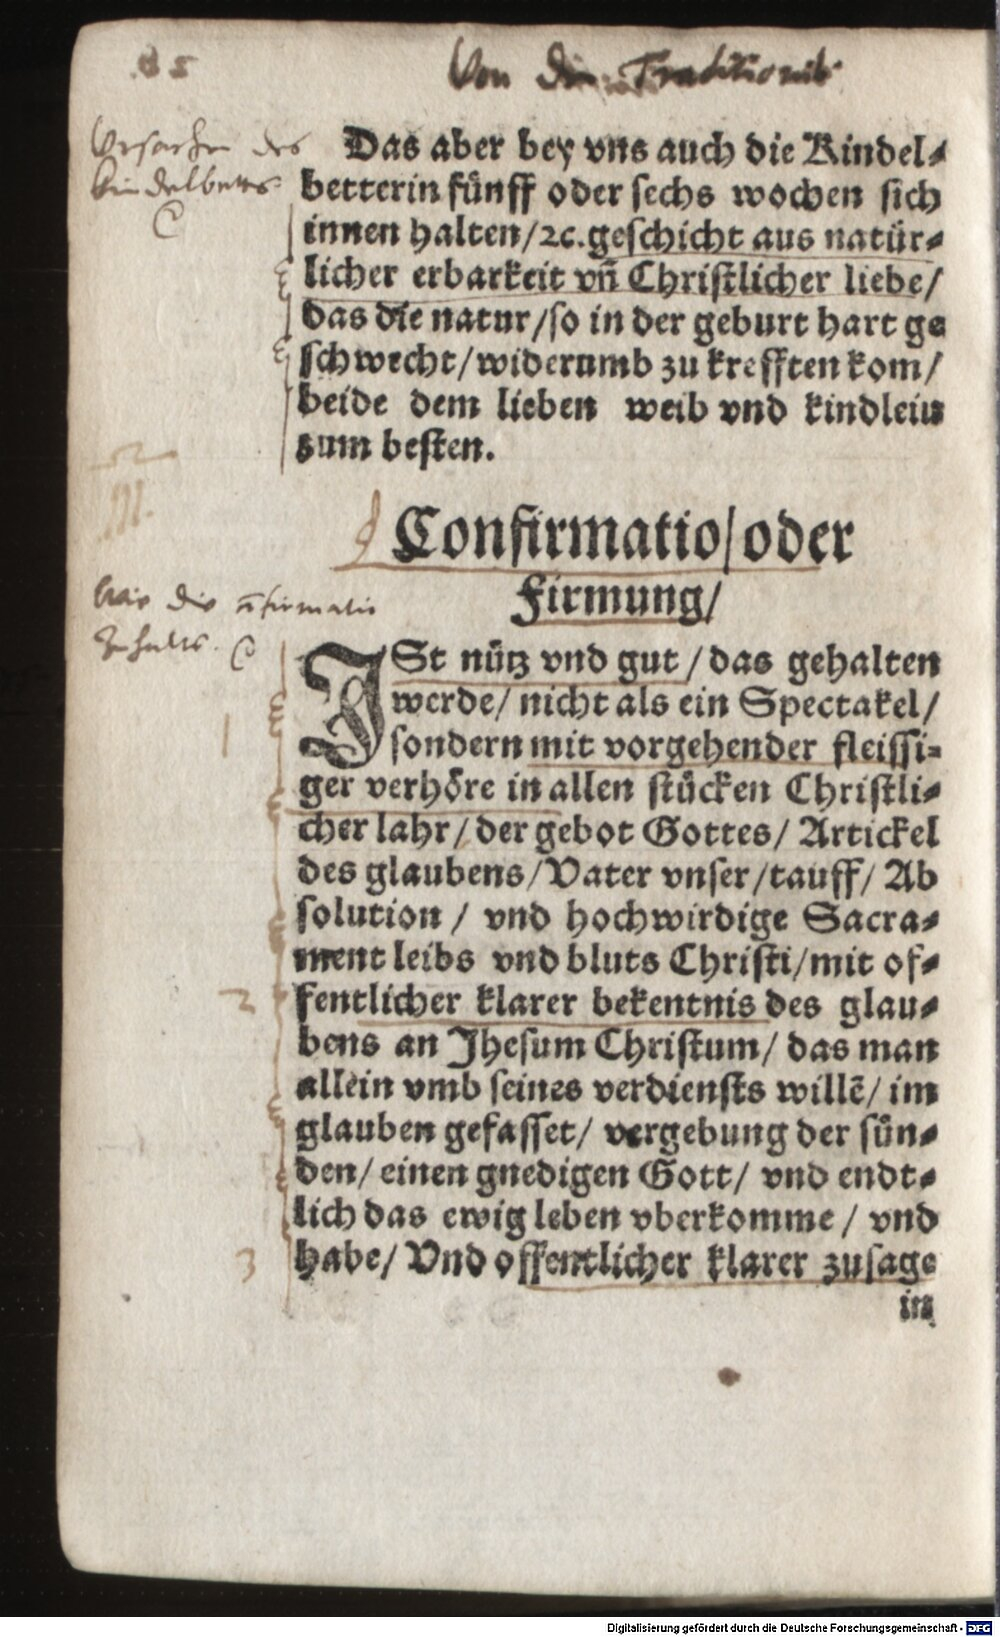 Von den Traditionib.
Vrsachen des
kindelbetts
Das aber bey vns auch die Kindel-
betterin fünff oder sechs wochen sich
innen halten/ꝛc. geschicht aus natür-
licher erbarkeit vñ Christlicher liebe/
das die natur/so in der geburt hart ge
schwecht/widerumb zu krefften kom/
beide dem lieben weib vnd kindlein
zum besten.
III.
Confirmatio/oder
Firmung/
Wie die
zuhalten.
ISt nütz vnd gut/das gehalten
werde/nicht als ein Spectakel/
1
sondern mit vorgehender fleissi-
ger verhöre in allen stücken Christli-
cher lahr/der gebot Gottes/Artickel
des glaubens/Vater vnser/tauff/Ab
solution/vnd hochwirdige Sacra-
ment leibs vnd bluts Christi/mit of-
2
fentlicher klarer bekentnis des glau-
bens an Jhesum Christum/das man
allein vmb seines verdiensts willē/im
glauben gefasset/vergebung der sün-
den/einen gnedigen Gott/vnd endt-
lich das ewig leben vberkomme/vnd
3
habe/Vnd offentlicher klarer zusage
in
Digitalisierung gefördert durch die Deutsche Forschungsgemeinschaft - DFG